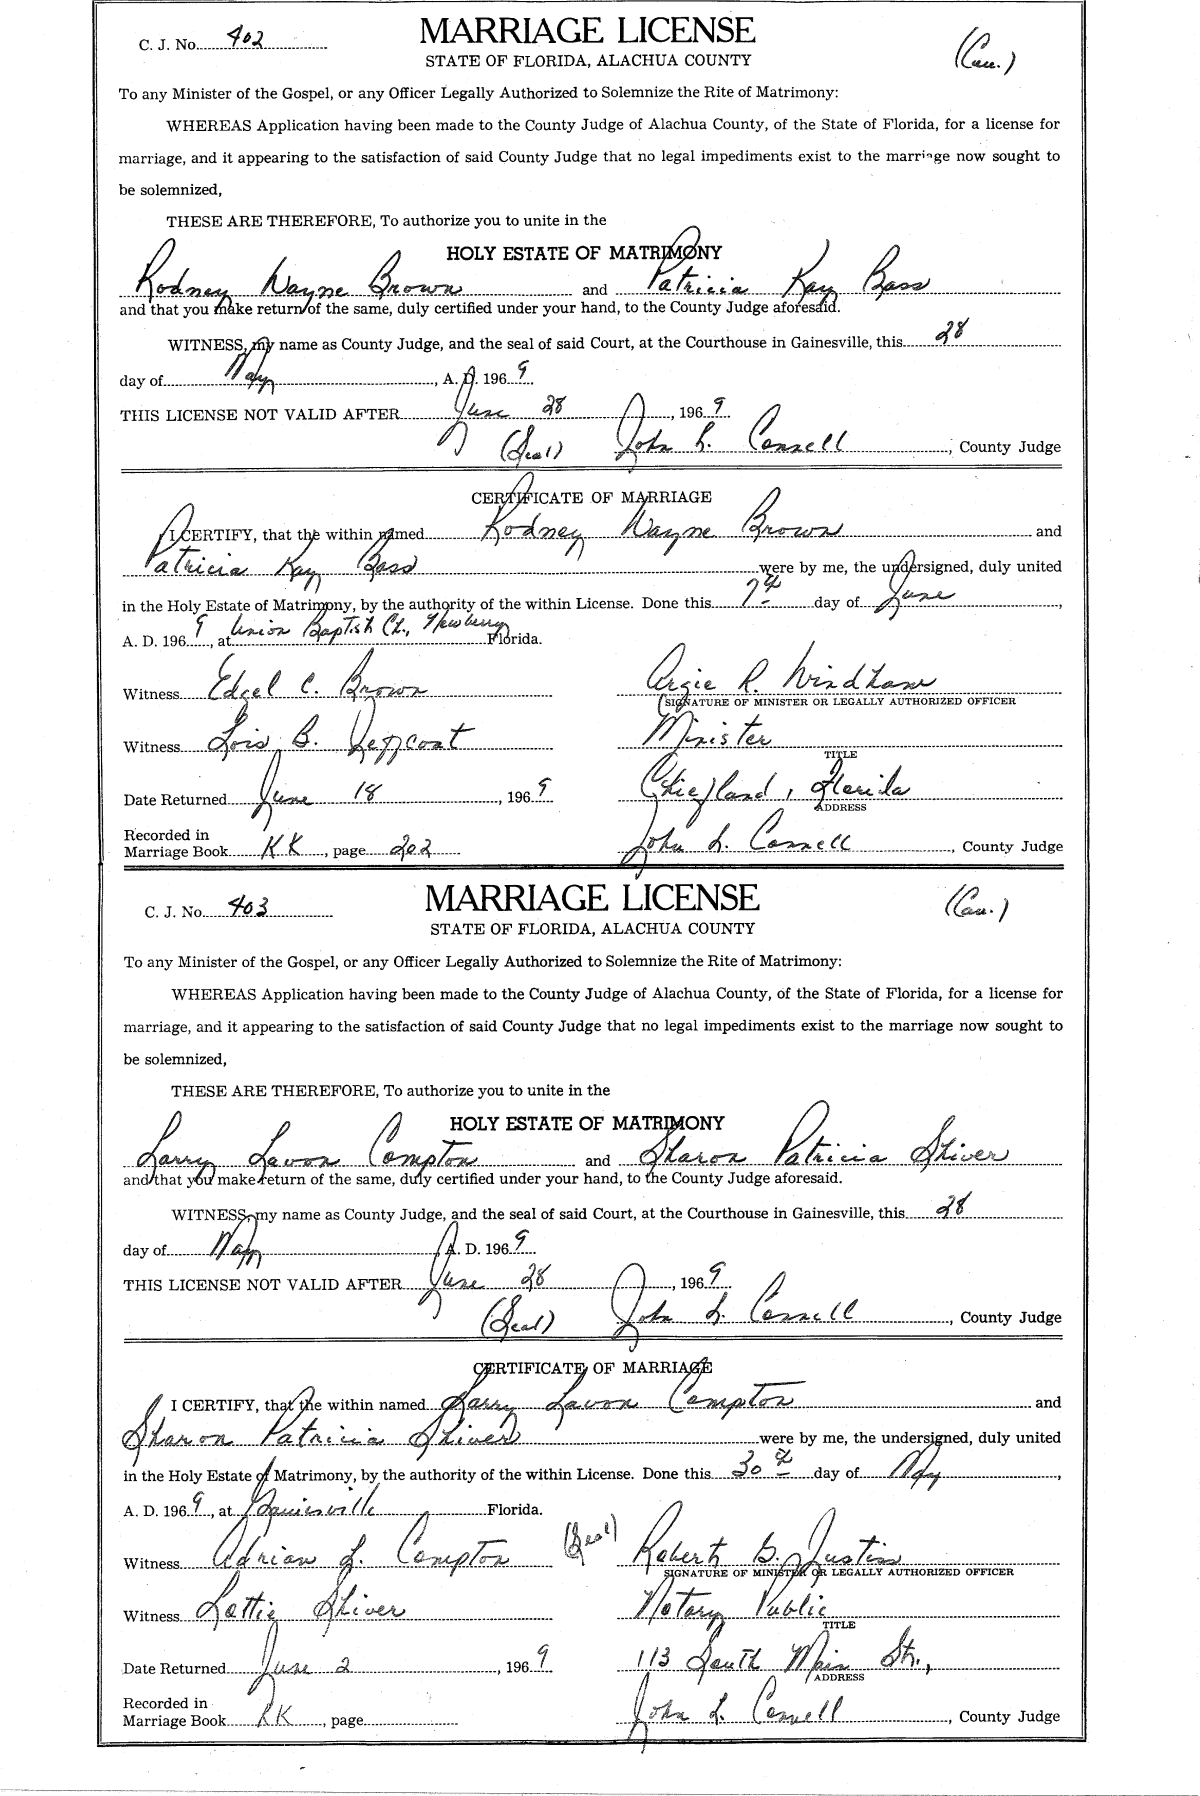 C. J. No. 402 MARRIAGE LICENSE (Cau.)
STATE OF FLORIDA, ALACHUA COUNTY
To any Minister of the Gospel, or any Officer Legally Authorized to Solemnize the Rite of Matrimony:
WHEREAS Application having been made to the County Judge of Alachua County, of the State of Florida, for a license for
marriage, and it appearing to the satisfaction of said County Judge that no legal impediments exist to the marriage now sought to
be solemnized,
THESE ARE THEREFORE, To authorize you to unite in the
HOLY ESTATE OF MATRIMONY
Rodney Wayne Brown and Patricia Kay Bass
and that you make return of the same, duly certified under your hand, to the County Judge aforesaid.
WITNESS, my name as County Judge, and the seal of said Court, at the Courthouse in Gainesville, this 28
day of May, A. D. 1969.
THIS LICENSE NOT VALID AFTER June 28, 1969.
(Seal) John L. Connell, County Judge
CERTIFICATE OF MARRIAGE
I CERTIFY, that the within named Rodney Wayne Brown and
Patricia Kay Bass were by me, the undersigned, duly united
in the Holy Estate of Matrimony, by the authority of the within License. Done this 7th day of June,
A. D. 1969, at Union Baptist Ch., Newberry Florida.
Witness Edsel C. Brown Argie R. Windham
SIGNATURE OF MINISTER OR LEGALLY AUTHORIZED OFFICER
Witness Lois B. Minister
TITLE
Date Returned June 18, 1969 Chiefland, Florida
ADDRESS
Recorded in
Marriage Book KK, page 202 John L. Connell, County Judge
C. J. No. 403 MARRIAGE LICENSE (Cau.)
STATE OF FLORIDA, ALACHUA COUNTY
To any Minister of the Gospel, or any Officer Legally Authorized to Solemnize the Rite of Matrimony:
WHEREAS Application having been made to the County Judge of Alachua County, of the State of Florida, for a license for
marriage, and it appearing to the satisfaction of said County Judge that no legal impediments exist to the marriage now sought to
be solemnized,
THESE ARE THEREFORE, To authorize you to unite in the
HOLY ESTATE OF MATRIMONY
Larry Lavon Compton and Sharon Patricia Shiver
and that you make return of the same, duly certified under your hand, to the County Judge aforesaid.
WITNESS, my name as County Judge, and the seal of said Court, at the Courthouse in Gainesville, this 28
day of May A. D. 1969.
THIS LICENSE NOT VALID AFTER June 28, 1969.
(Seal) John L. Connell, County Judge
CERTIFICATE OF MARRIAGE
I CERTIFY, that the within named Larry Lavon Compton and
Sharon Patricia Shiver were by me, the undersigned, duly united
in the Holy Estate of Matrimony, by the authority of the within License. Done this 30th day of May,
A. D. 1969, at Gainesville Florida.
Witness Adrian L. Compton (Seal) Robert G. Justiss
SIGNATURE OF MINISTER OR LEGALLY AUTHORIZED OFFICER
Witness Lottie Shiver Notary Public
TITLE
Date Returned June 2, 1969 113 South Main Str.,
ADDRESS
Recorded in
Marriage Book KK, page John L. Connell, County Judge